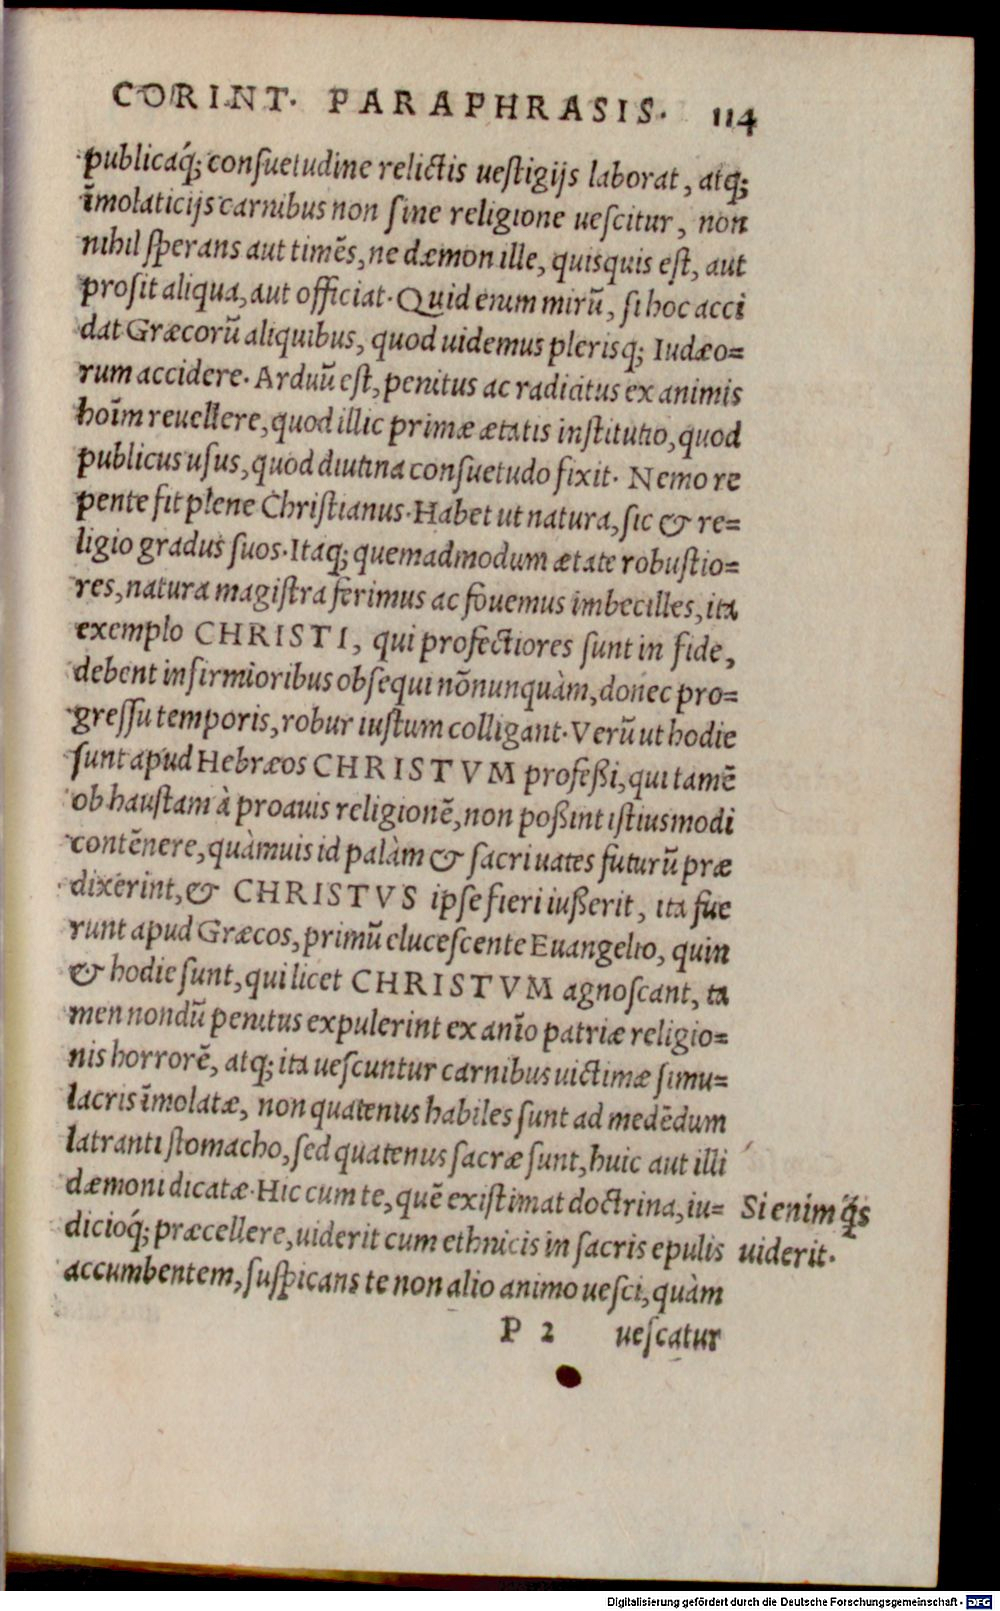 CORINT. PARAPHRASIS. 114
publicaq́; consuetudine relictis uestigijs laborat, atq;
īmolaticijs carnibus non sine religione uescitur, non
nihil sperans aut timẽs, ne dæmon ille, quisquis est, aut
prosit aliqua, aut officiat. Quid enim mirũ, si hoc acci
dat Græcorũ aliquibus, quod uidemus plerisq; Iudæo=
rum accidere. Arduũ est, penitus ac radicitus ex animis
hoīm reuellere, quod illic primæ ætatis institutio, quod
publicus usus, quod diutina consuetudo fixit. Nemo re
pente fit plene Christianus. Habet ut natura, sic & re=
ligio gradus suos. Itaq; quemadmodum ætate robustio=
res, natura magistra ferimus ac fouemus imbecilles, ita
exemplo CHRISTI, qui profectiores sunt in fide,
debent infirmioribus obsequi nõnunquàm, donec pro=
gressu temporis, robur iustum colligant. Verũ ut hodie
sunt apud Hebræos CHRISTVM professi, qui tamẽ
ob haustam à proauis religionẽ, non possint istiusmodi
contẽnere, quàmuis id palàm & sacri uates futurũ præ
dixerint, & CHRISTVS ipse fieri iusserit, ita fue
runt apud Græcos, primũ elucescente Euangelio, quin
& hodie sunt, qui licet CHRISTVM agnoscant, ta
men nondũ penitus expulerint ex anīo patriæ religio=
nis horrorẽ, atq; ita uescuntur carnibus uictimæ simu=
lacris īmolatæ, non quatenus habiles sunt ad medẽdum
latranti stomacho, sed quatenus sacræ sunt, huic aut illi
dæmoni dicatæ. Hic cum te, quẽ existimat doctrina, iu=
dicioq́; præcellere, uiderit cum ethnicis in sacris epulis
accumbentem, suspicans te non alio animo uesci, quàm
Si enim q̃s
uiderit.
P 2 uescatur
Digitalisierung gefördert durch die Deutsche Forschungsgemeinschaft - DFG